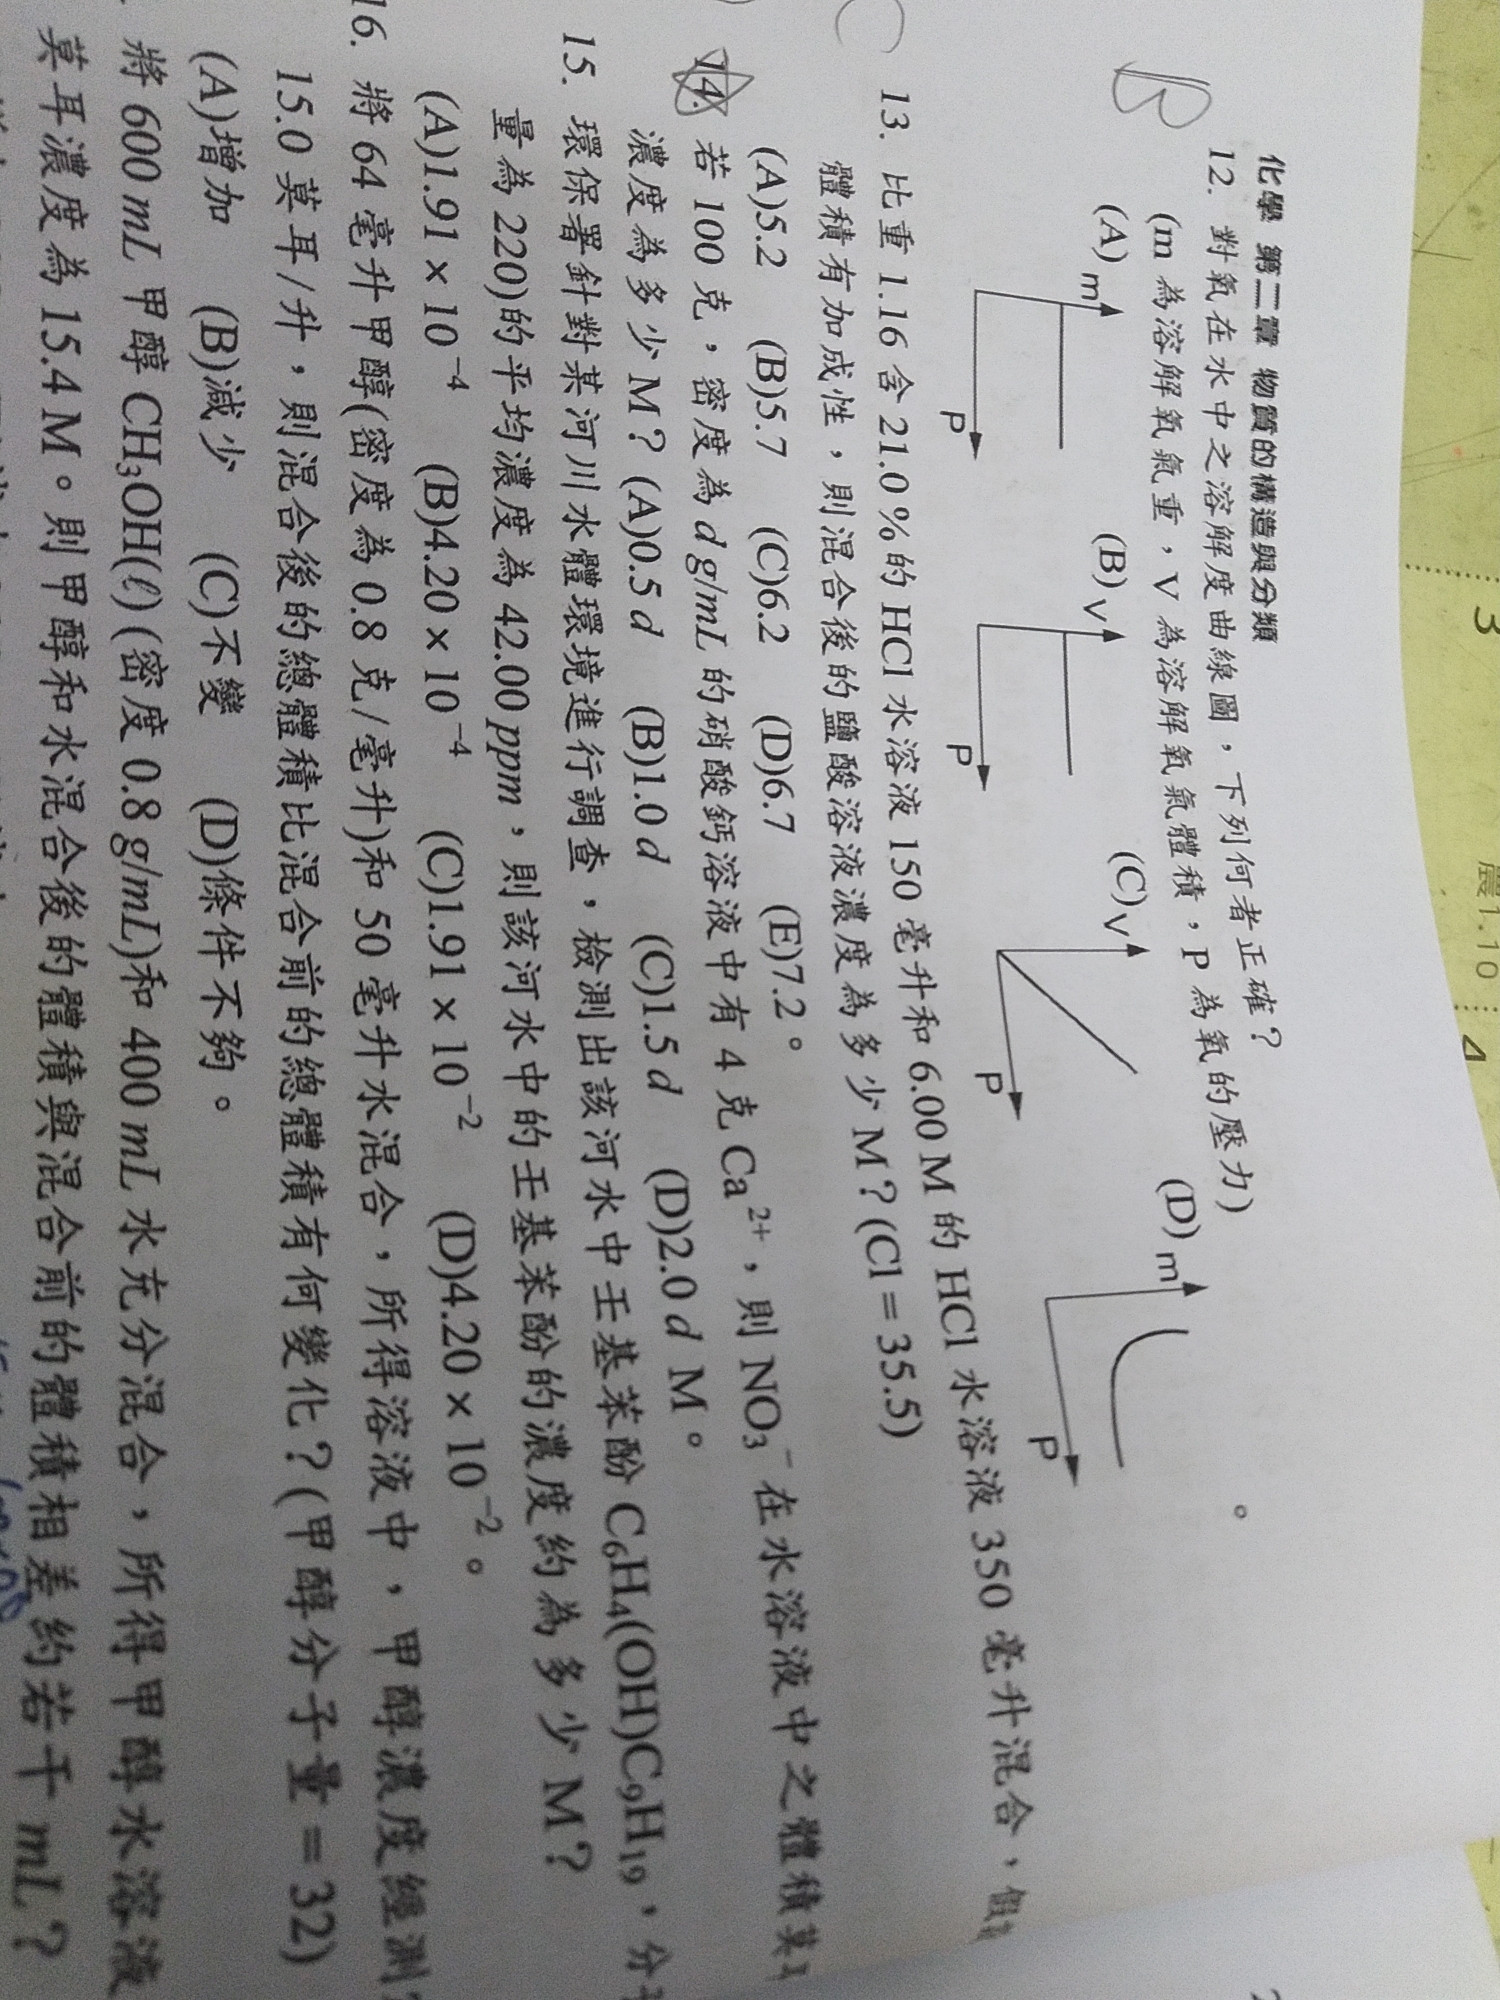 3
4
化學 第二章 物質的構造與分類
B
12. 對氧在水中之溶解度曲線圖，下列何者正確？
(m 為溶解氧氣重，V 為溶解氧氣體積，P 為氧的壓力)
(A) m P (B) V P (C) V P (D) m P 。
C
13. 比重 1.16 含 21.0 %的 HCl 水溶液 150 毫升和 6.00 M 的 HCl 水溶液 350 毫升混合，假
體積有加成性，則混合後的鹽酸溶液濃度為多少 M？(Cl = 35.5)
(A)5.2 (B)5.7 (C)6.2 (D)6.7 (E)7.2。
14. 若 100 克，密度為 d g/mL 的硝酸鈣溶液中有 4 克 Ca²⁺，則 NO₃⁻ 在水溶液中之體積莫
濃度為多少 M？(A)0.5 d (B)1.0 d (C)1.5 d (D)2.0 d M。
15. 環保署針對某河川水體環境進行調查，檢測出該河水中壬基苯酚 C₆H₄(OH)C₉H₁₉，分
量為 220)的平均濃度為 42.00 ppm，則該河水中的壬基苯酚的濃度約為多少 M？
(A)1.91 × 10⁻⁴ (B)4.20 × 10⁻⁴ (C)1.91 × 10⁻² (D)4.20 × 10⁻²。
16. 將 64 毫升甲醇(密度為 0.8 克/毫升)和 50 毫升水混合，所得溶液中，甲醇濃度經測
15.0 莫耳/升，則混合後的總體積比混合前的總體積有何變化？(甲醇分子量 = 32)
(A)增加 (B)減少 (C)不變 (D)條件不夠。
將 600 mL 甲醇 CH₃OH(ℓ) (密度 0.8 g/mL)和 400 mL 水充分混合，所得甲醇水溶液
莫耳濃度為 15.4 M。則甲醇和水混合後的體積與混合前的體積相差約若干 mL？